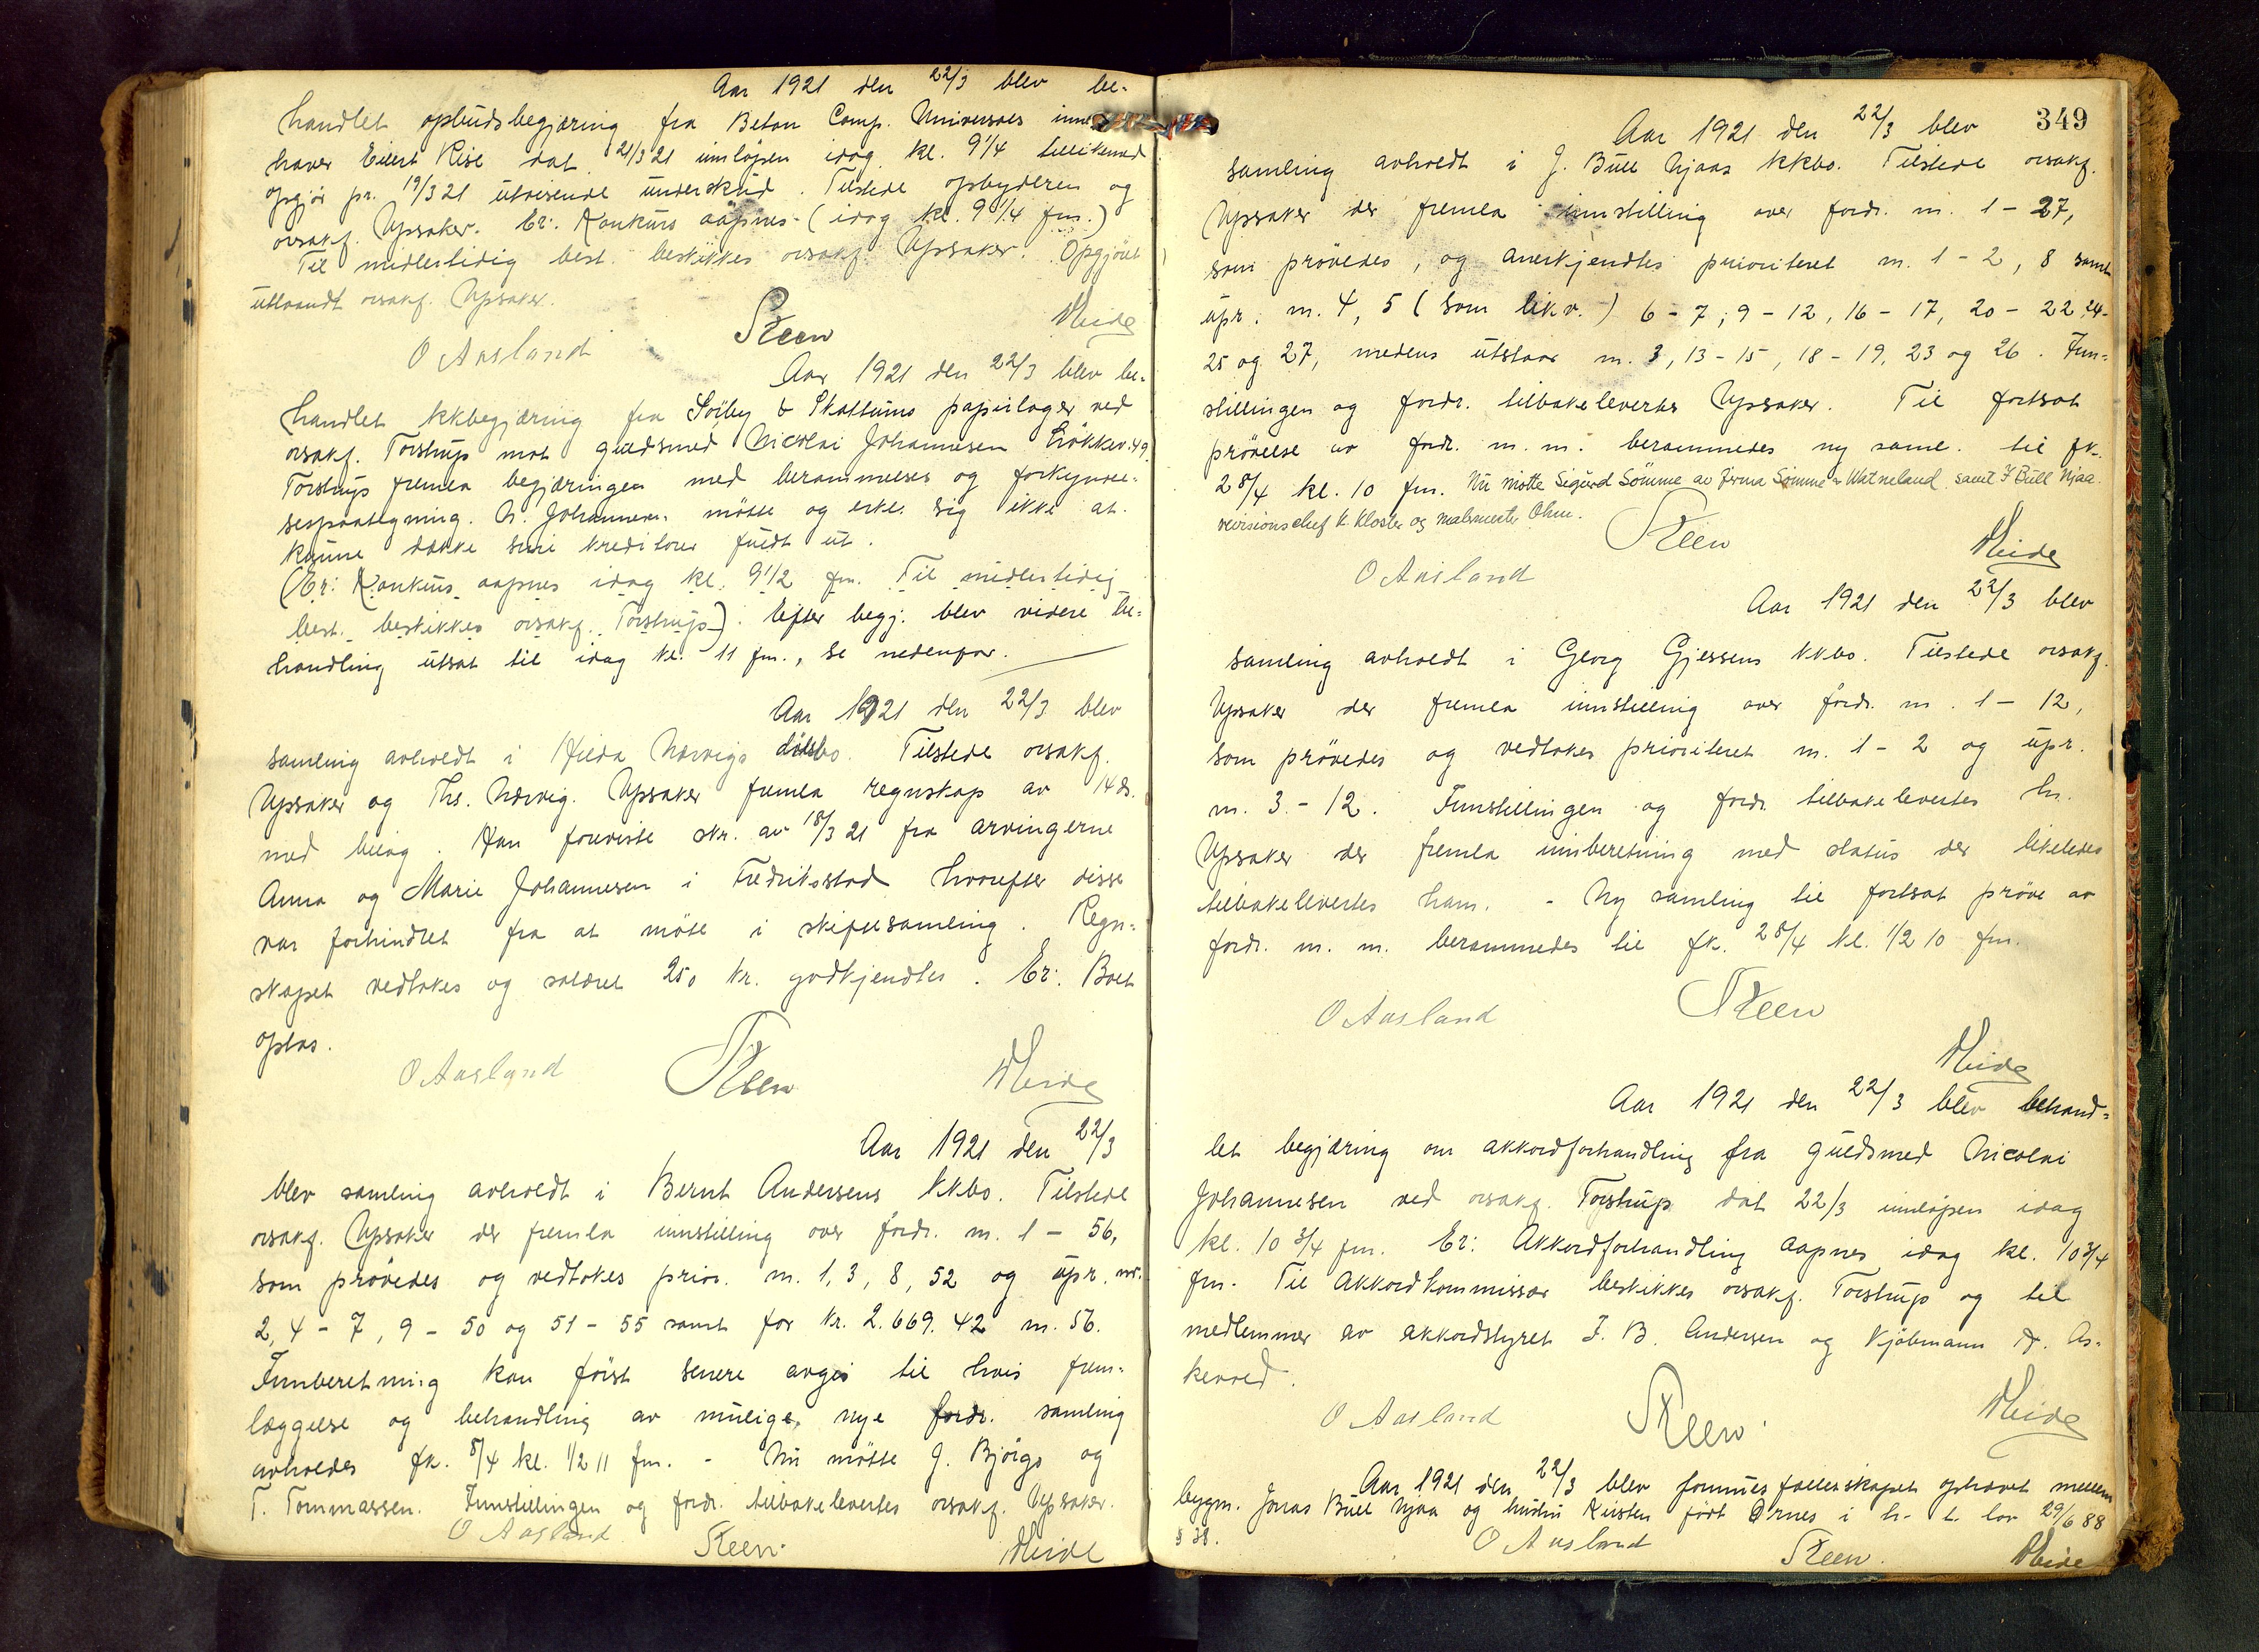 Aar 1921 den 22/3 blev be-
handlet opbudsbegjæring fra Beton Comp. Universal inne-
haver Eilert Rise dat. 21/3 21 innløpen idag kl. 9 1/4 tillikemed
opgjør pr. 19/3 21 utvisende underskud. Tilstede opbyderen og
orsakf. Upsaker. Er: Konkurs aapnes (idag kl. 9 1/4 fm.)
Til midlertidig best. beskikkes orsakf. Upsaker. Opgjøret
utlaandt orsakf. Upsaker.
O Aasland Steen Meide
Aar 1921 den 22/3 blev be-
handlet kkbegjæring fra Söiby & Skattums papirlager ved
orsakf. Torstrup mot guldsmed Nicolai Johannesen Løkkev. 49.
Torstrup fremla begjæringen med berammelses og forkynnel-
sespaategning. N. Johannesen møtte og erkl. sig ikke at
kunne dække sine kreditorer fuldt ut.
(Er: Konkurs aapnes idag kl. 9 1/2 fm. Til midlertidig
best. beskikkes orsakf. Torstrup). Efter begj. blev videre be-
handling utsat til idag kl. 11 fm., se nedenfor.
Aar 1921 den 22/3 blev
samling avholdt i Hilda Nærvigs dødsbo. Tilstede orsakf.
Upsaker og Ths. Nærvig. Upsaker fremla regnskap av 14 ds.
med bilag. Han foreviste skr. av 18/3 21 fra arvingerne
Anna og Marie Johannesen i Fredriksstad hvorefter disse
var forhindret fra at møte i skiftesamling. Regn-
skapet vedtokes og salæret 250 kr. godkjendtes. Er: Boet
optas.
O Aasland Steen Meide
Aar 1921 den 22/3
blev samling avholdt i Bernt Andersens kkbo. Tilstede
orsakf. Upsaker der fremla innstilling over fordr. nr. 1 - 56,
som prøvedes og vedtokes prior. nr. 1, 3, 8, 52 og upr. nr.
2, 4 - 7, 9 - 50 og 51 - 55 samt for kr. 2.669.42 nr. 56.
Innberetning kan først senere avgis til hvis frem-
læggelse og behandling av mulige nye fordr. samling
avholdes fk. 8/4 kl. 1/2 11 fm. - Nu møtte J. Bjørgo og
T. Tommassen. Innstillingen og fordr. tilbakelevertes orsakf. Upsaker.
O Aasland Steen Meide
349
Aar 1921 den 22/3 blev
samling avholdt i J. Bull Njaas kkbo. Tilstede orsakf.
Upsaker der fremla innstilling over fordr. nr. 1 - 27,
som prøvedes, og anerkjendtes prioriteret nr. 1 - 2, 8 samt
upr. nr. 4, 5 (som likv.) 6 - 7, 9 - 12, 16 - 17, 20 - 22, 24-
25 og 27, medens utstaar nr. 3, 13 - 15, 18 - 19, 23 og 26. Inn-
stillingen og fordr. tilbakelevertes Upsaker. Til fortsat
prøvelse av fordr. m. m. berammedes ny saml. til fk.
28/4 kl. 10 fm. Nu møtte Sigurd Sömme av firma Sömme & Watneland samt J Bull Njaa.
revisionschef K. Kloster og malermester Ohm.
O Aasland Steen Meide
Aar 1921 den 22/3 blev
samling avholdt i Georg Gjessens kkbo. Tilstede orsakf.
Upsaker der fremla innstilling over fordr. nr. 1 - 12,
som prøvedes og vedtokes prioriteret nr. 1 - 2 og upr.
nr. 3 - 12. Innstillingen og fordr. tilbakelevertes hr.
Upsaker der fremla innberetning med status der likeledes
tilbakelevertes ham. - Ny samling til fortsat prøve av
fordr. m. m. berammedes til fk. 28/4 kl. 1/2 10 fm.
O Aasland Steen
Meide
Aar 1921 den 22/3 blev behand-
let begjæring om akkordforhandling fra guldsmed Nicolai
Johannesen ved orsakf. Torstrup dat 22/3 innløpen idag
kl. 10 3/4 fm. Er: Akkordforhandling aapnes idag kl. 10 3/4
fm. Til Akkordkommissær beskikkes orsakf. Torstrup og til
medlemmer av akkordstyret J. B. Andersen og kjøbmann A. As-
kevold.
O Aasland Steen Meide
Aar 1921 den 22/3 blev formuesfællesskapet ophævet mellem
bygm. Jonas Bull Njaa og hustru Kirsten født Ørnes i h. t. lov 29/6 88
§ 38.
O Aasland Steen Meide